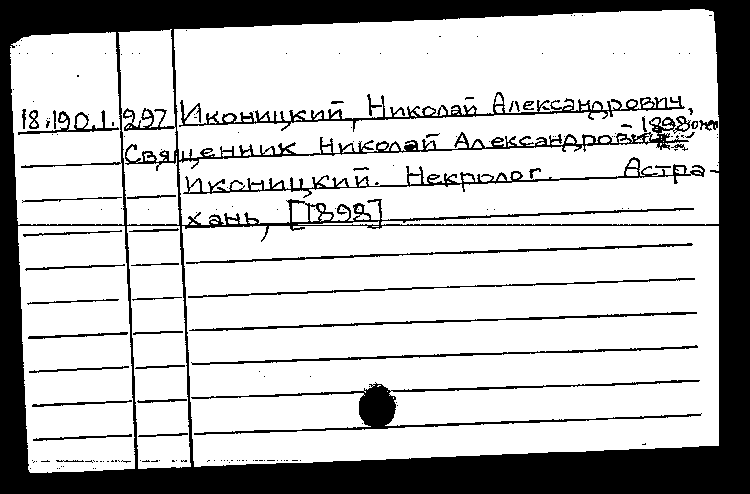 18.190.1.297 Иконицкий, Николай Александрович,
- 1898
Священник Николай Александрович
Иконицкий. Некролог. Астра-
хань, [1898]